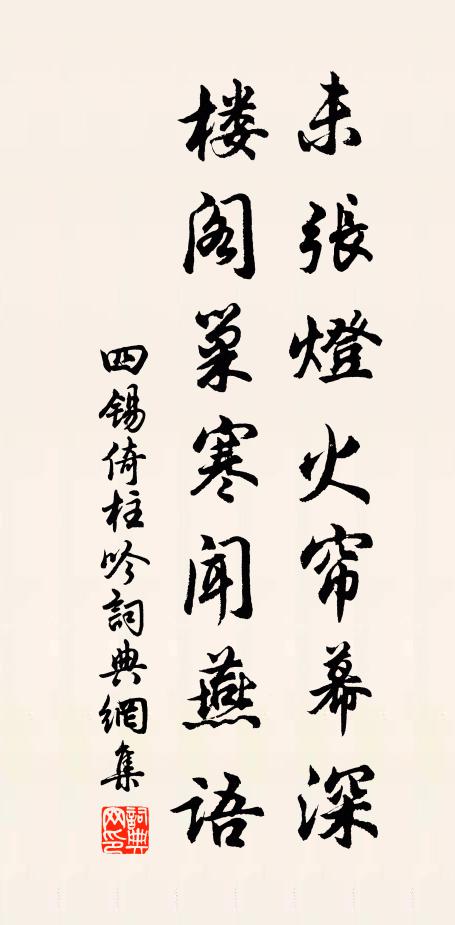 未張燈火帘幕深
楼阁巢寒闻燕语
四锡倚柱吟詞典網集
詞典
网印